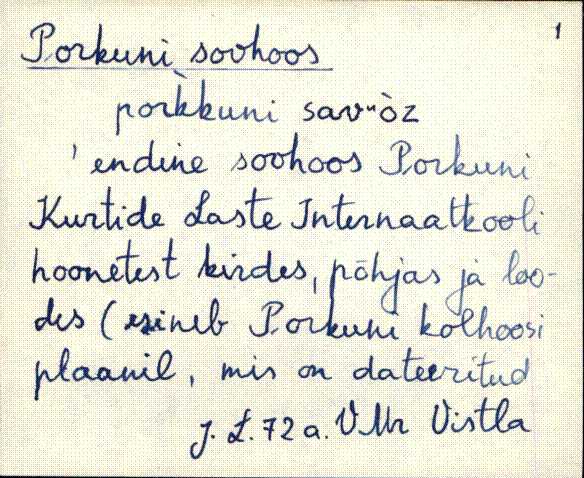 1
Porkuni sovhoos
porkkuni savʺòz
' endine sovhoos Porkuni
Kurtide Laste Internaatkooli
hoonetest kirdes, põhjas ja loo-
des (esineb Porkuni kolhoosi
plaanil, mis on dateeritud
J. L. 72 a. VMr Vistla